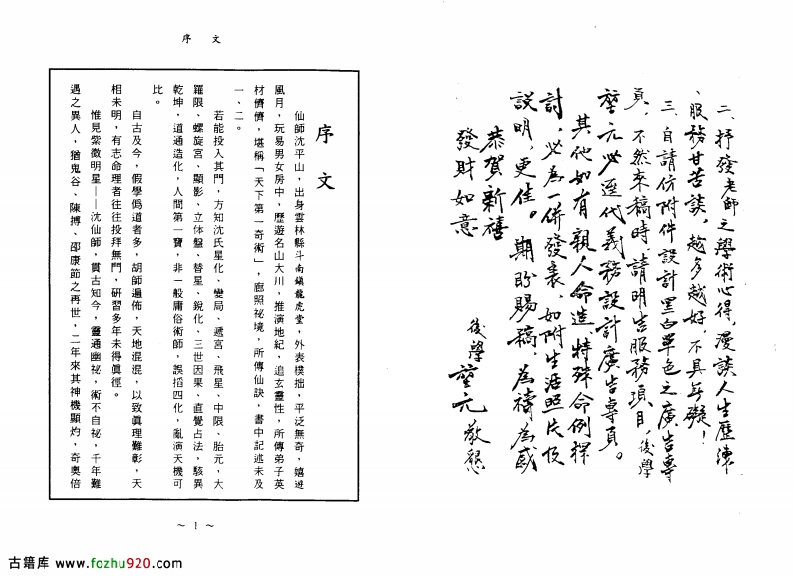 二、抒發老師之學術心得，漫談人生歷練
、服務甘苦談，越多越好，不具無礙！
三、自請仿附件設計黑白單色之廣告專
頁，不然來稿時，請明告服務項目，後學
堃元必逕代義務設計廣告專頁。
其他如有親人命造、特殊命例探
討，必為一併發表，如附生活照片及
說明更佳。期盼賜稿，為禱為感
恭賀新禧
發財如意
後學 堃元 敬懇
序文
序文
仙師沈平山，出身雲林縣斗南鎮龍虎堂，外表樸拙，平泛無奇、嬉遊
風月，玩易男女房中，歷遊名山大川，推演地紀，追玄靈性，所傳弟子英
材儕儕，堪稱「天下第一奇術」，廊照祕境，所傳仙訣，書中記述未及
一、二。
若能投入其門，方知沈氏星化、變局、遞宮、飛星、中限、胎元、大
羅限、螺旋宮、顯影、立体盤、替星、銳化、三世因果、直覺占法，駭異
乾坤，道通造化，人間第一寶，非一般庸俗術師，誤搯四化，亂演天機可
比。
自古及今，假學僞道者多，胡師遍佈，天地混混，以致眞理難彰，天
相未明，有志命理者往往投拜無門，研習多年未得眞徑。
惟見紫微明星——沈仙師，貫古知今，靈通幽祕，術不自祕，千年難
遇之異人，猶鬼谷、陳摶、邵康節之再世，二年來其神機顯灼，奇奧倍
~ 1 ~
古籍库 www.fozhu920.com